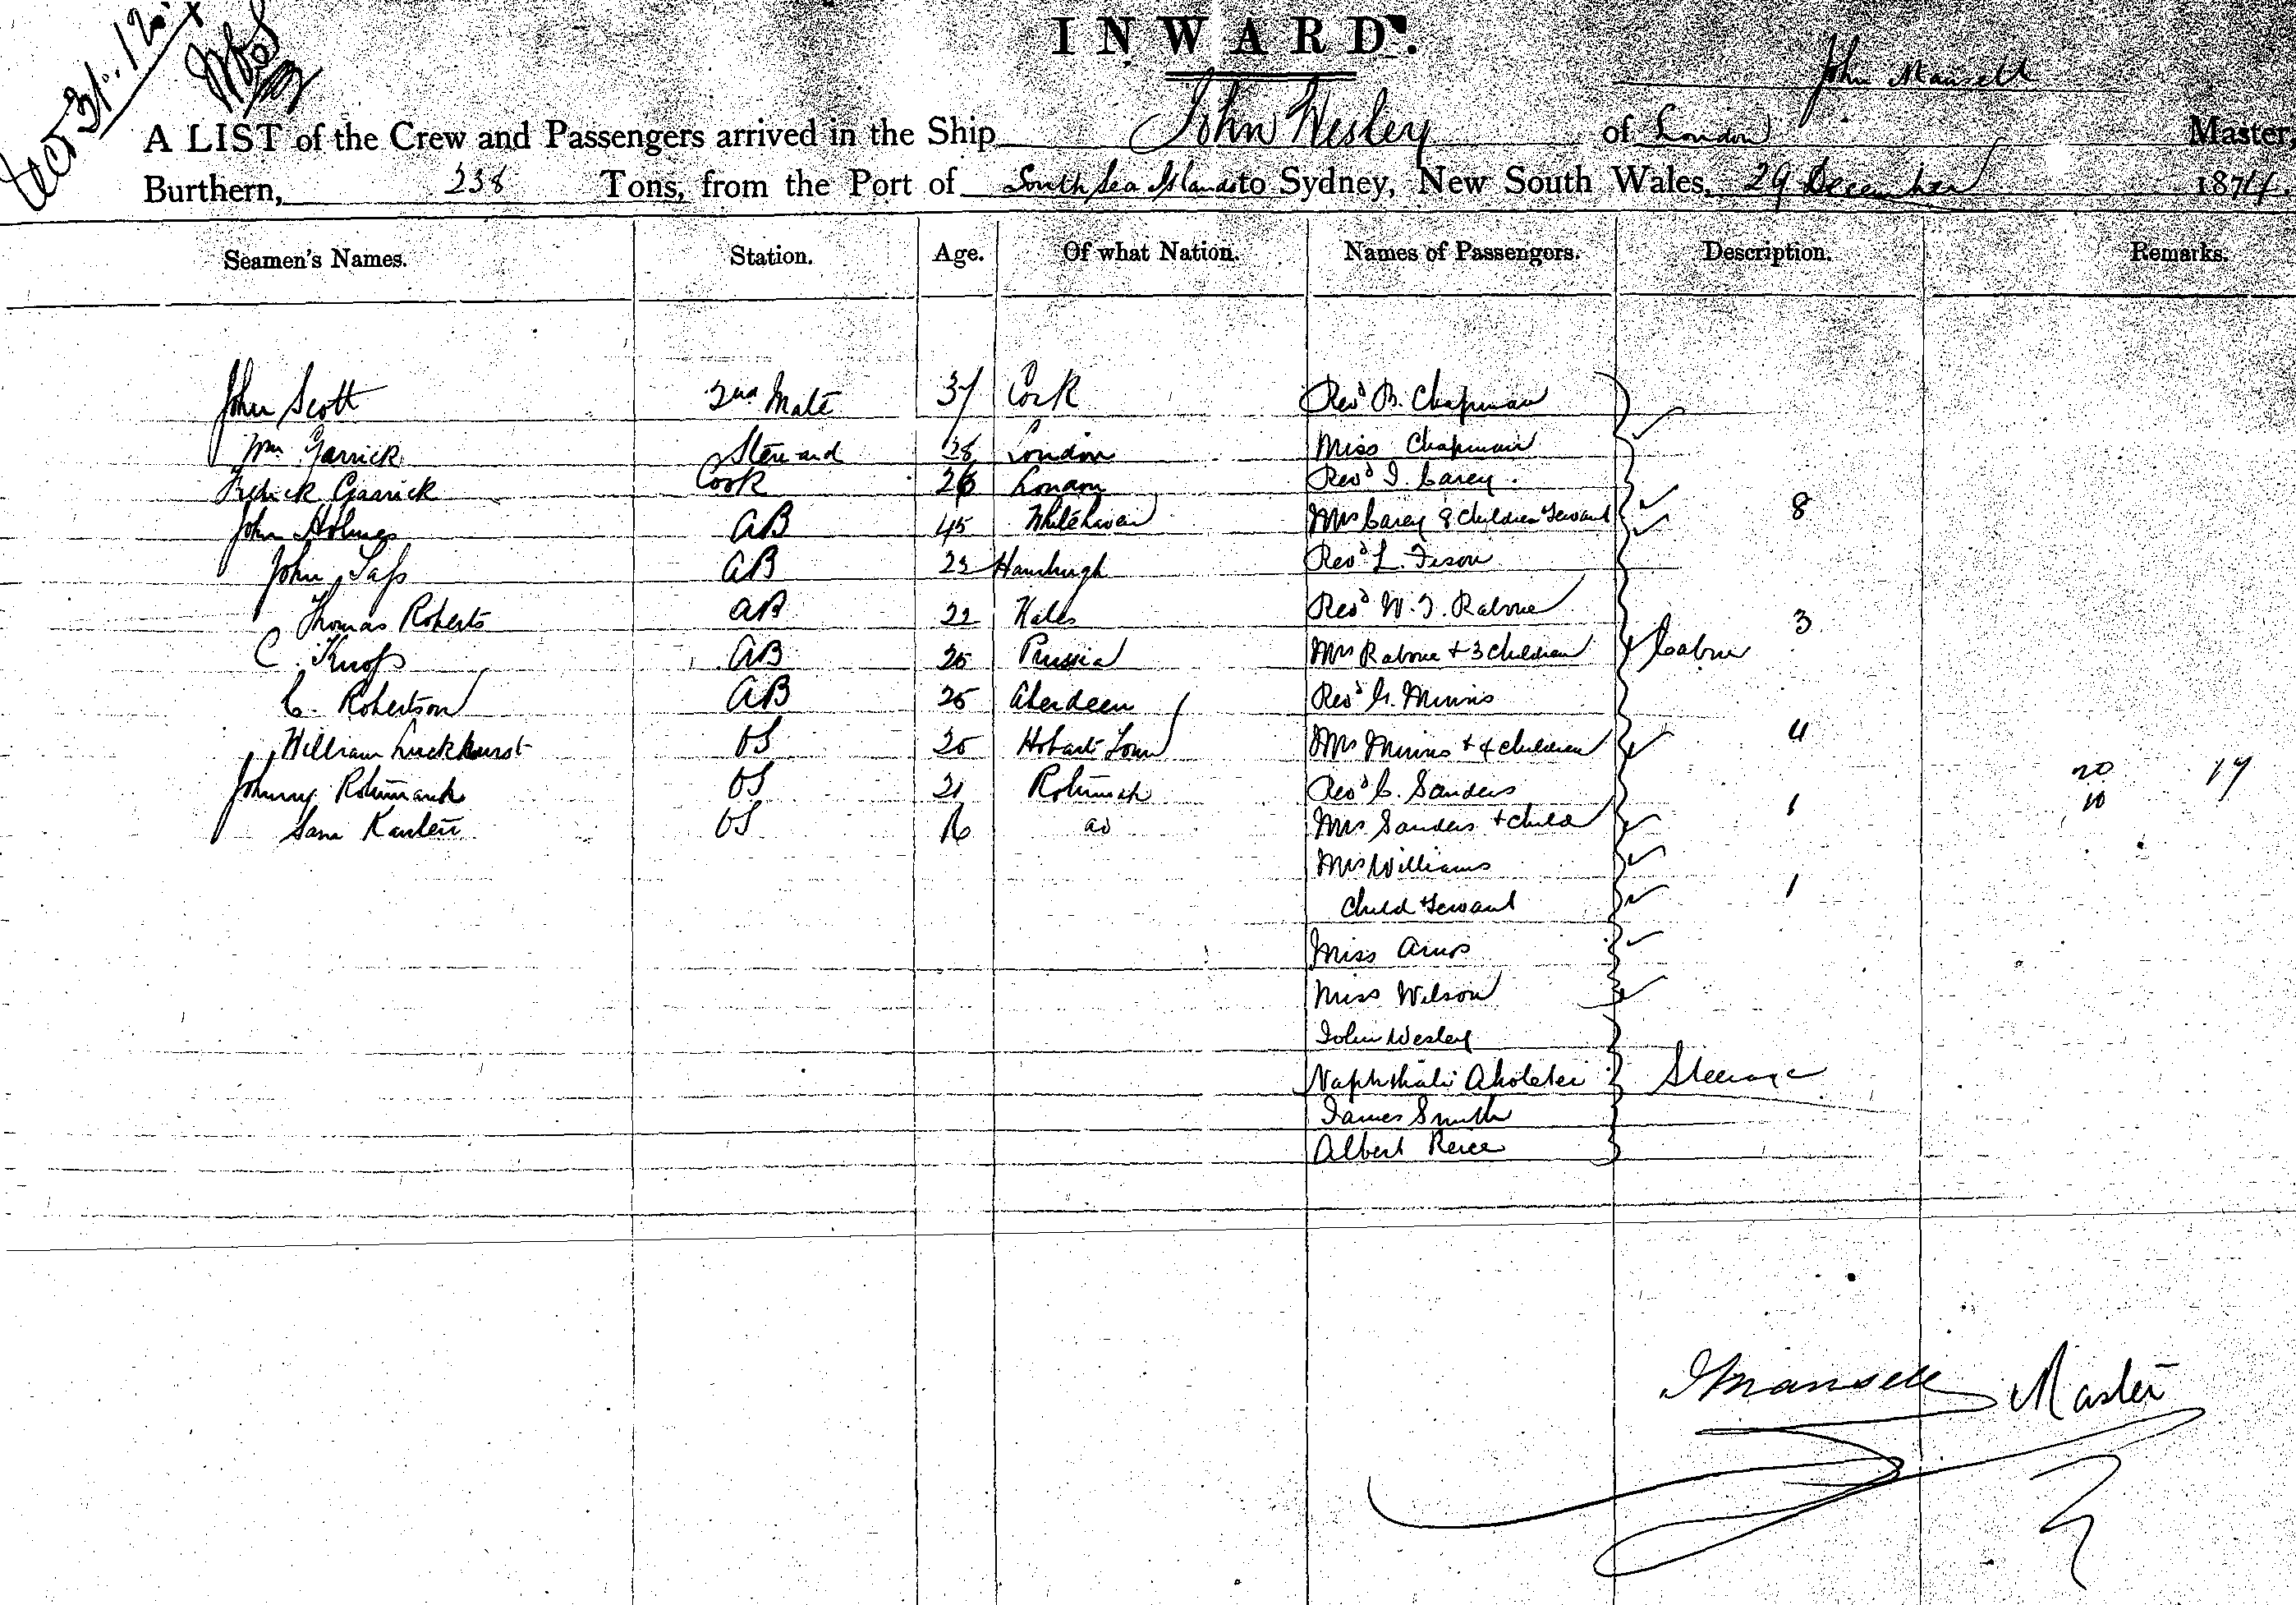 INWARD.
John Mansell
A LIST of the Crew and Passengers arrived in the Ship John Wesley of London Master,
Burthern, 238 Tons, from the Port of South Sea Islands to Sydney, New South Wales, 29 December 1874
Seamen's Names. Station. Age. Of what Nation. Names of Passengers. Description. Remarks.
John Scott 2nd Mate 37 Cork Revd B. Chapman
Wm Garrick Steward 28 London Miss Chapman
Fredrick Garrick Cook 26 London Revd J. Carey.
John Holmes AB 45 Whitehaven Mrs Carey 8 children Servant 8
John AB 23 Hamburgh Revd L. Fison
Thomas Roberts AB 22 Wales Revd W. T. Rabone
C. AB 25 Prussia Mrs Rabone + 3 children Cabin 3
C. Robertson AB 25 Aberdeen Revd G. Minns
William Luckhurst OS 20 Hobart Town Mrs Minns + 4 children 4
Johnny Rotumah OS 21 Rotumah Revd C. Sanders 20 17
Sam OS do Mrs Sanders + child 1 10
Mrs Williams
Child + Servant 1
Miss
Miss Wilson
John Wesley
Naphthali Steerage
James Smith
Albert
J Mansell Master